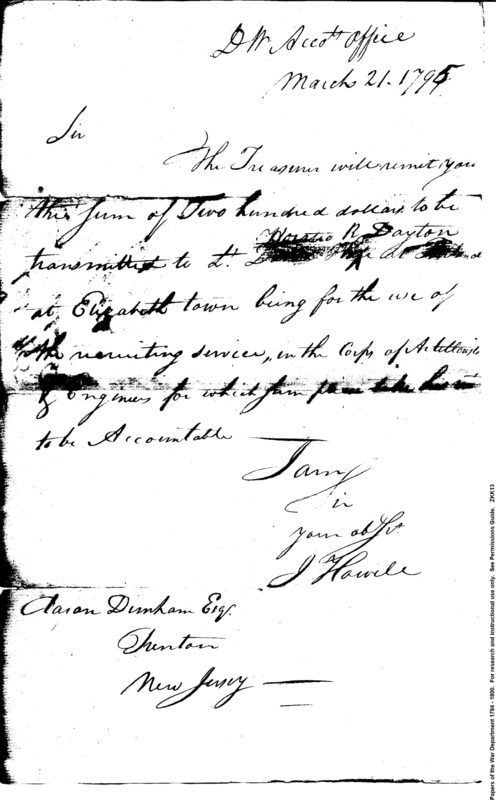 D W Accots Office
March 21. 1795
Sir
The Treasurer will remit, you
the Sum of Two hundred dollars to be
Horatio R Dayton
transmitted to Lt. at
at Elizabeth town being for the use of
the recruiting service, in the Corps of Artillerists
& Engineers for which Sum
to be Accountable
I am
Sir
your ob Svt
J Howell
Aaron Dunham Esqr.
Trenton
New Jersey
Papers of the War Department 1784 - 1800. For research and instructional use only. See Permissions Guide. ZKK13